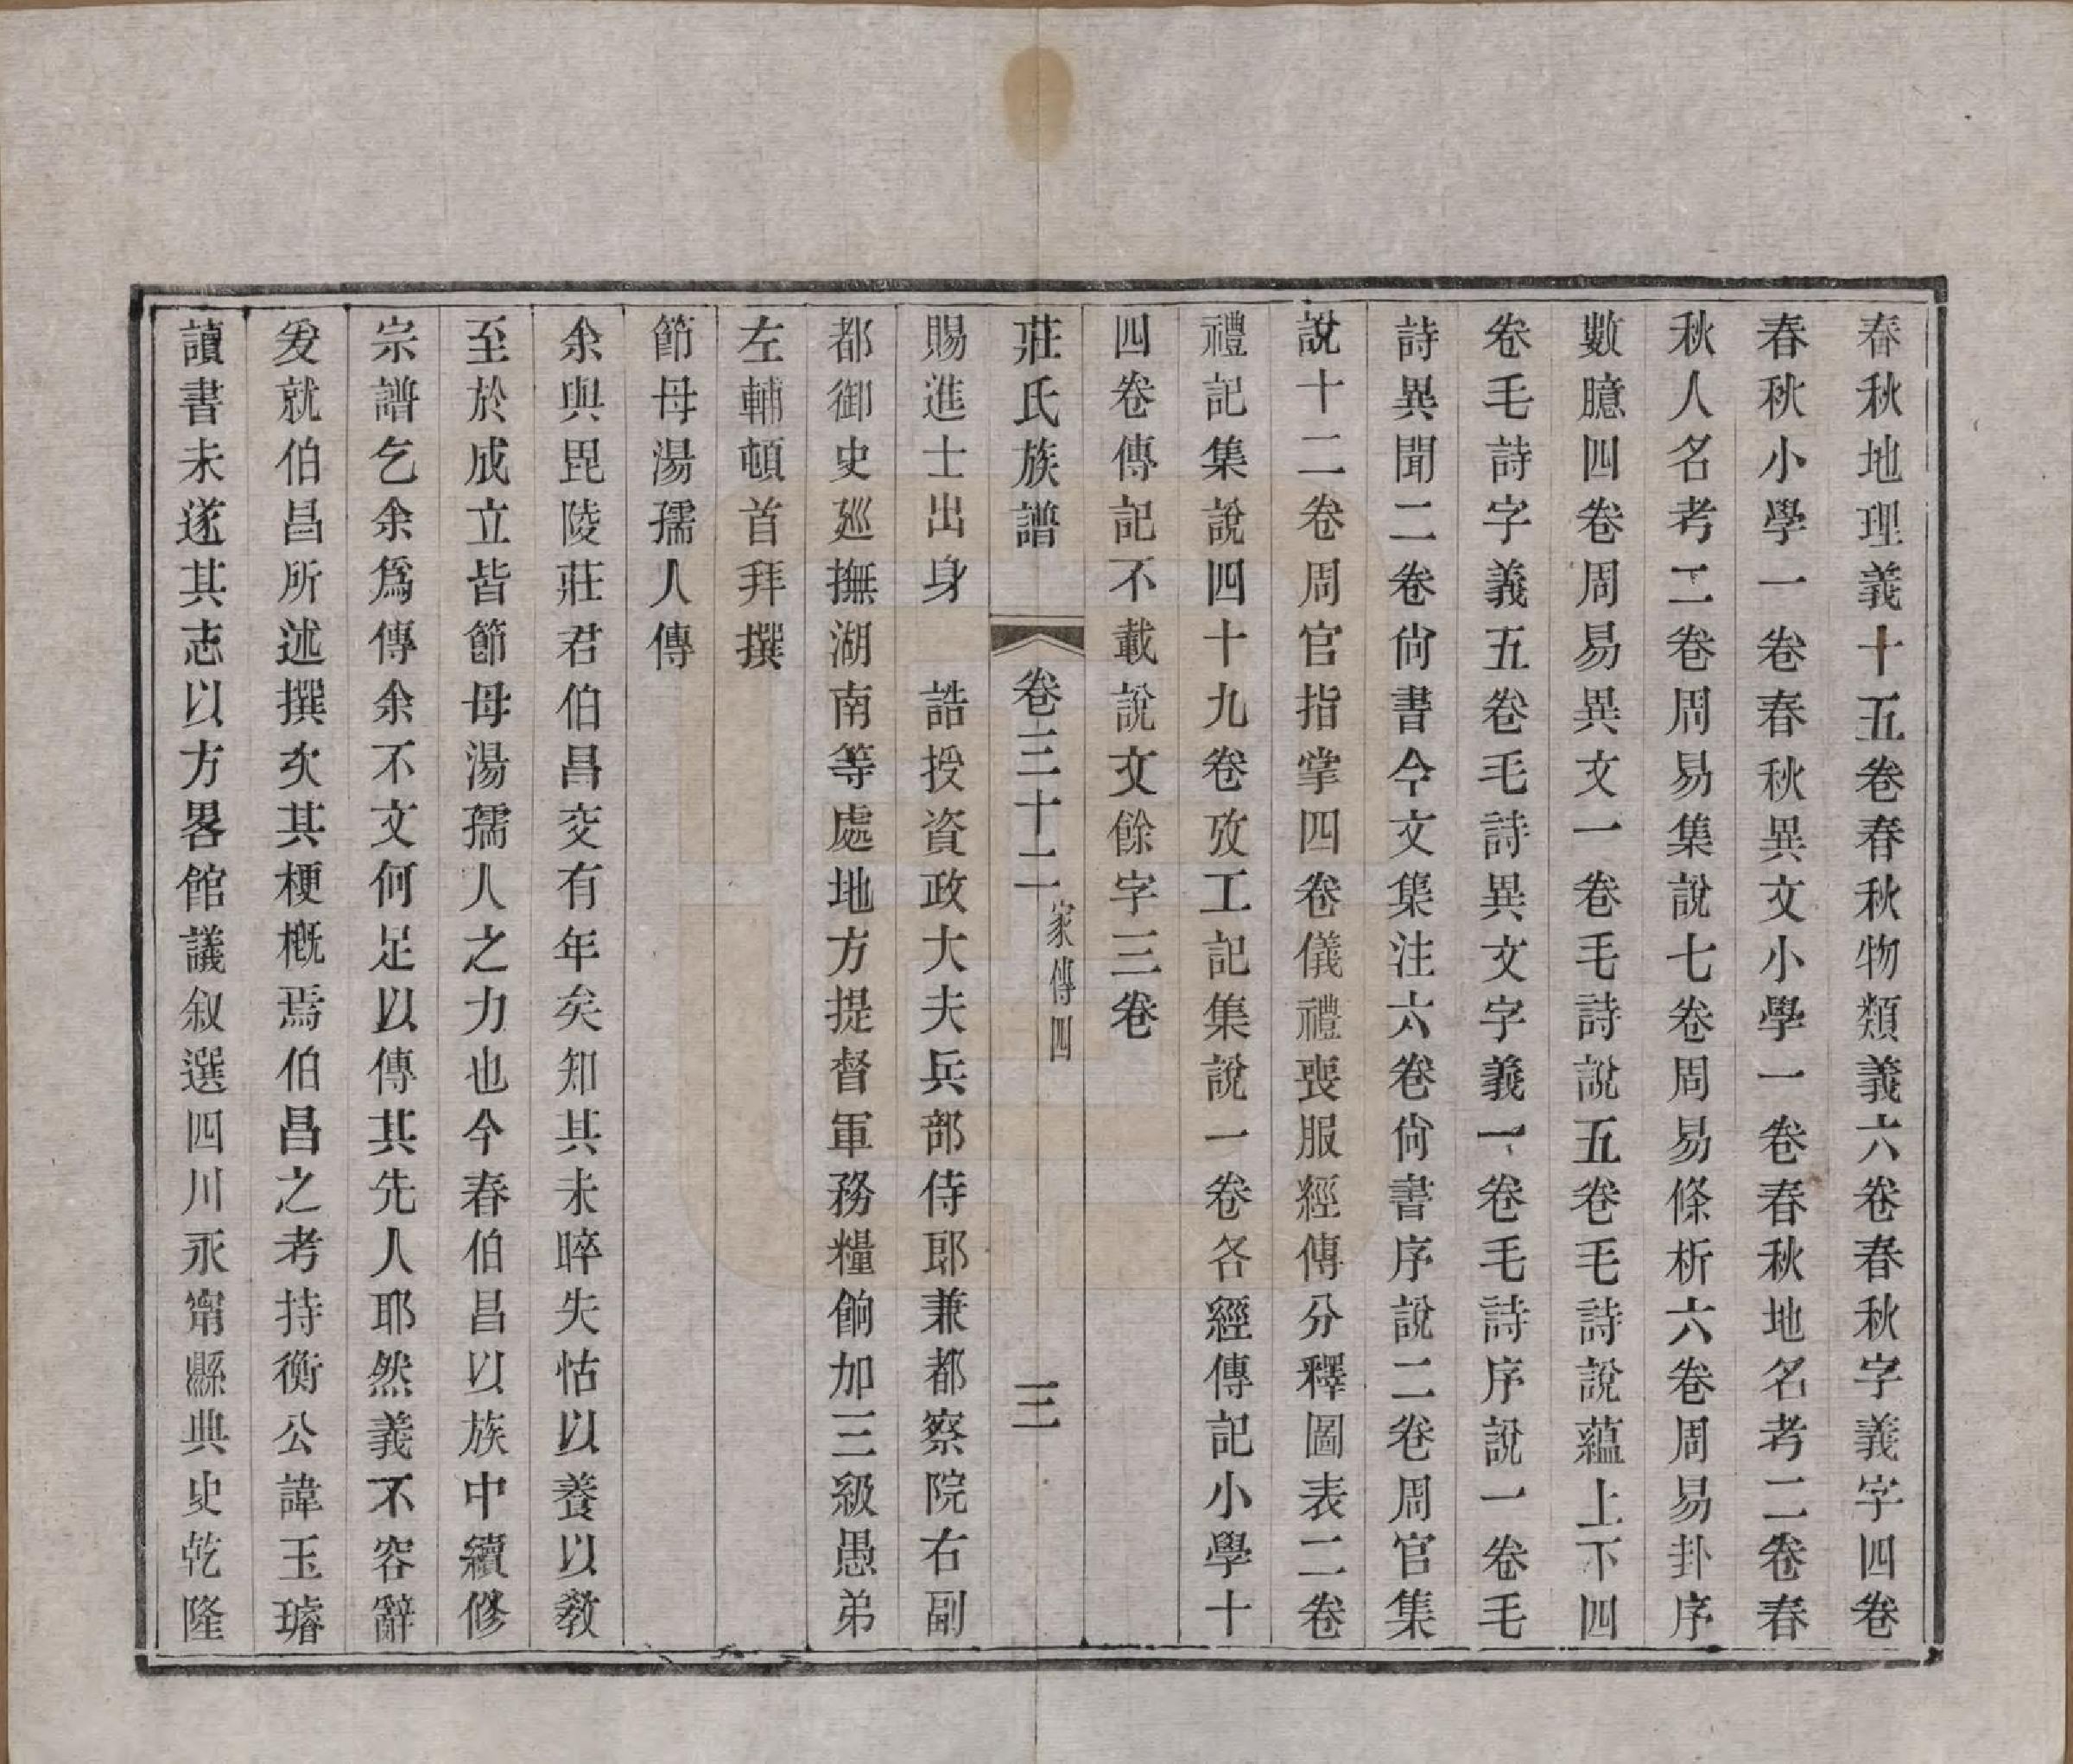 春秋地理義十五卷春秋物類義六卷春秋字義字四卷
春秋小學一卷春秋異文小學一卷春秋地名考二卷春
秋人名考二卷周易集說七卷周易條析六卷周易卦序
數臆四卷周易異文一卷毛詩說五卷毛詩說蘊上下四
卷毛詩字義五卷毛詩異文字義一卷毛詩序說一卷毛
詩異聞二卷尙書今文集注六卷尙書序說二卷周官集
說十二卷周官指掌四卷儀禮喪服經傳分釋圖表二卷
禮記集說四十九卷攷工記集說一卷各經傳記小學十
四卷傳記不載說文餘字三卷
莊氏族譜 卷三十二 家傳四 三
賜進士出身 誥授資政大夫兵部侍郎兼都察院右副
都御史廵撫湖南等處地方提督軍務糧餉加三級愚弟
左輔頓首拜撰
節母湯孺人傳
余與毘陵莊君伯昌交有年矣知其未晬失怙以養以教
至於成立皆節母湯孺人之力也今春伯昌以族中續修
宗譜乞余爲傳余不文何足以傳其先人耶然義不容辭
爰就伯昌所述撰次其梗槪焉伯昌之考持衡公諱玉璿
讀書未遂其志以方畧館議叙選四川永甯縣典史乾隆